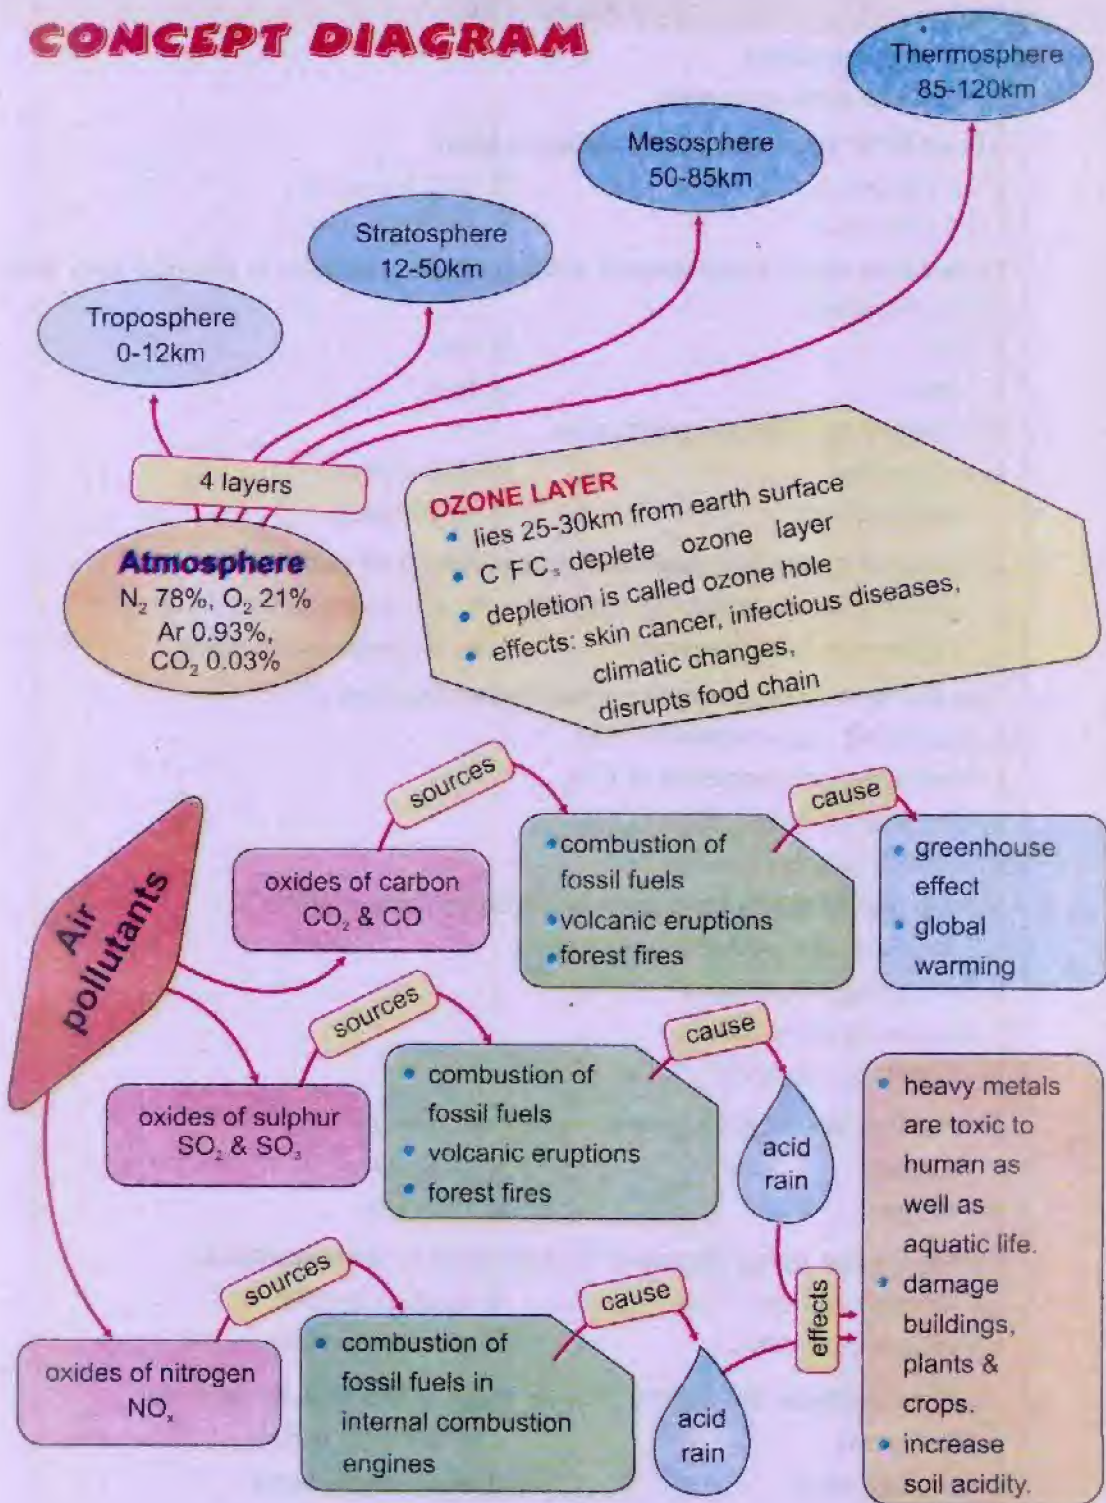 CONCEPT DIAGRAM
Thermosphere
85-120km
Mesosphere
50-85km
Stratosphere
12-50km
Troposphere
0-12km
4 layers
Atmosphere
N₂ 78%, O₂ 21%
Ar 0.93%,
CO₂ 0.03%
OZONE LAYER
• lies 25-30km from earth surface
• C FCₛ deplete ozone layer
• depletion is called ozone hole
• effects: skin cancer, infectious diseases,
climatic changes,
disrupts food chain
Air
pollutants
oxides of carbon
CO₂ & CO
sources
• combustion of
fossil fuels
• volcanic eruptions
• forest fires
cause
• greenhouse
effect
• global
warming
oxides of sulphur
SO₂ & SO₃
sources
• combustion of
fossil fuels
• volcanic eruptions
• forest fires
cause
acid
rain
oxides of nitrogen
NOₓ
sources
• combustion of
fossil fuels in
internal combustion
engines
cause
acid
rain
effects
• heavy metals
are toxic to
human as
well as
aquatic life.
• damage
buildings,
plants &
crops.
• increase
soil acidity.